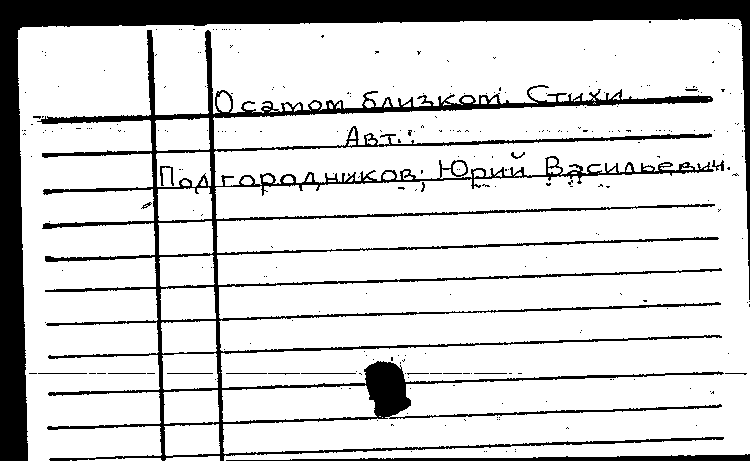 О самом близком. Стихи.
Авт.:
Подгородников, Юрий Васильевич.